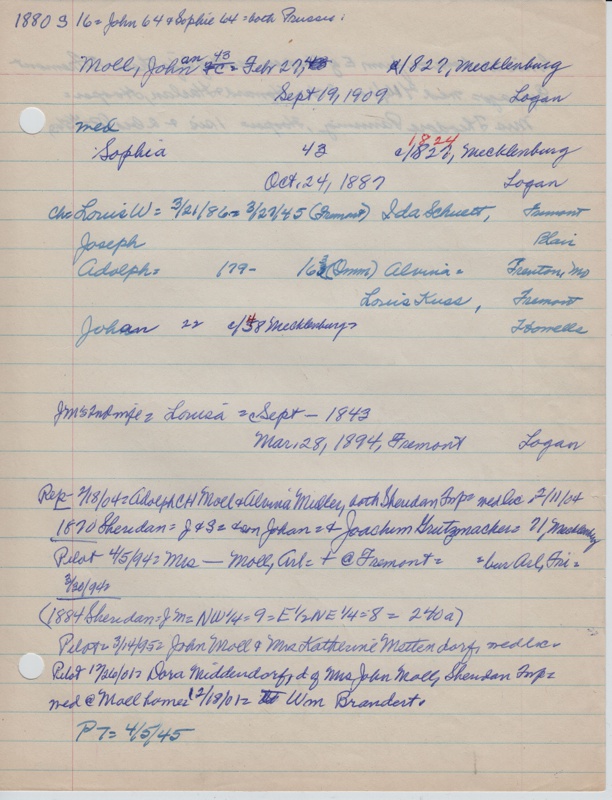 1880 S 16 = John 64 & Sophie 64 = both Prussia:
Moll, Johan an 43 = Feb 27, c/1827, Mecklenburg
Sept 19, 1909 Logan
med
Sophia 43 1824 c/1827, Mecklenburg
Oct. 24, 1887 Logan
Ch= Louis W = 3/21/86 = 3/27/45 (Fremont) Ida Schuett, Fremont
Joseph Blair
Adolph = 179- 16 (Omm) Alvina = Fremont
Louis Kuss, Fremont
Johan 22 c/48 Mecklenburg Howells
JM's 2nd wife = Louisa = Sept - 1843
Mar. 28, 1894, Fremont Logan
Rep 2/18/04 = Adolph CH Moll & Alvina Muller, both Sheridan Twp = med Loc. 2/11/04
1870 Sheridan = J & S = & son Johan = & Joachim Grutzmacher = 71, Mecklenburg
Pilot 4/5/94 = Mrs — Moll, Arl = + @ Fremont = = bur Arl, Fri =
3/30/94=
(1884 Sheridan = JM = NW 1/4 = 9 = E 1/2 NE 1/4 = 8 = 240 a)
Pilot = 3/14/95 = John Moll & Mrs Katherine Mettendorf, med loc.
Pilot 12/26/01 = Dora Middendorf, d of Mrs John Moll, Sheridan Twp =
med @ Moll home = 12/18/01 = to Wm Brandert.
PT = 4/5/45